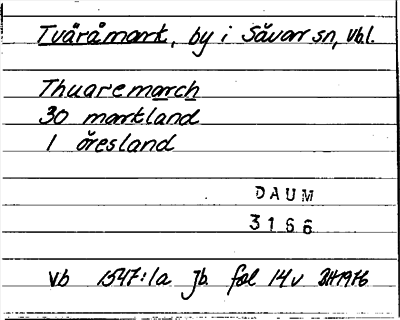 Tvåråmark, by i Sävar sn, Vbl.
Thuaremarch
30 markland
1 öresland
DAUM
3166
Vb 1547:1a Jb. fol 14v 1976